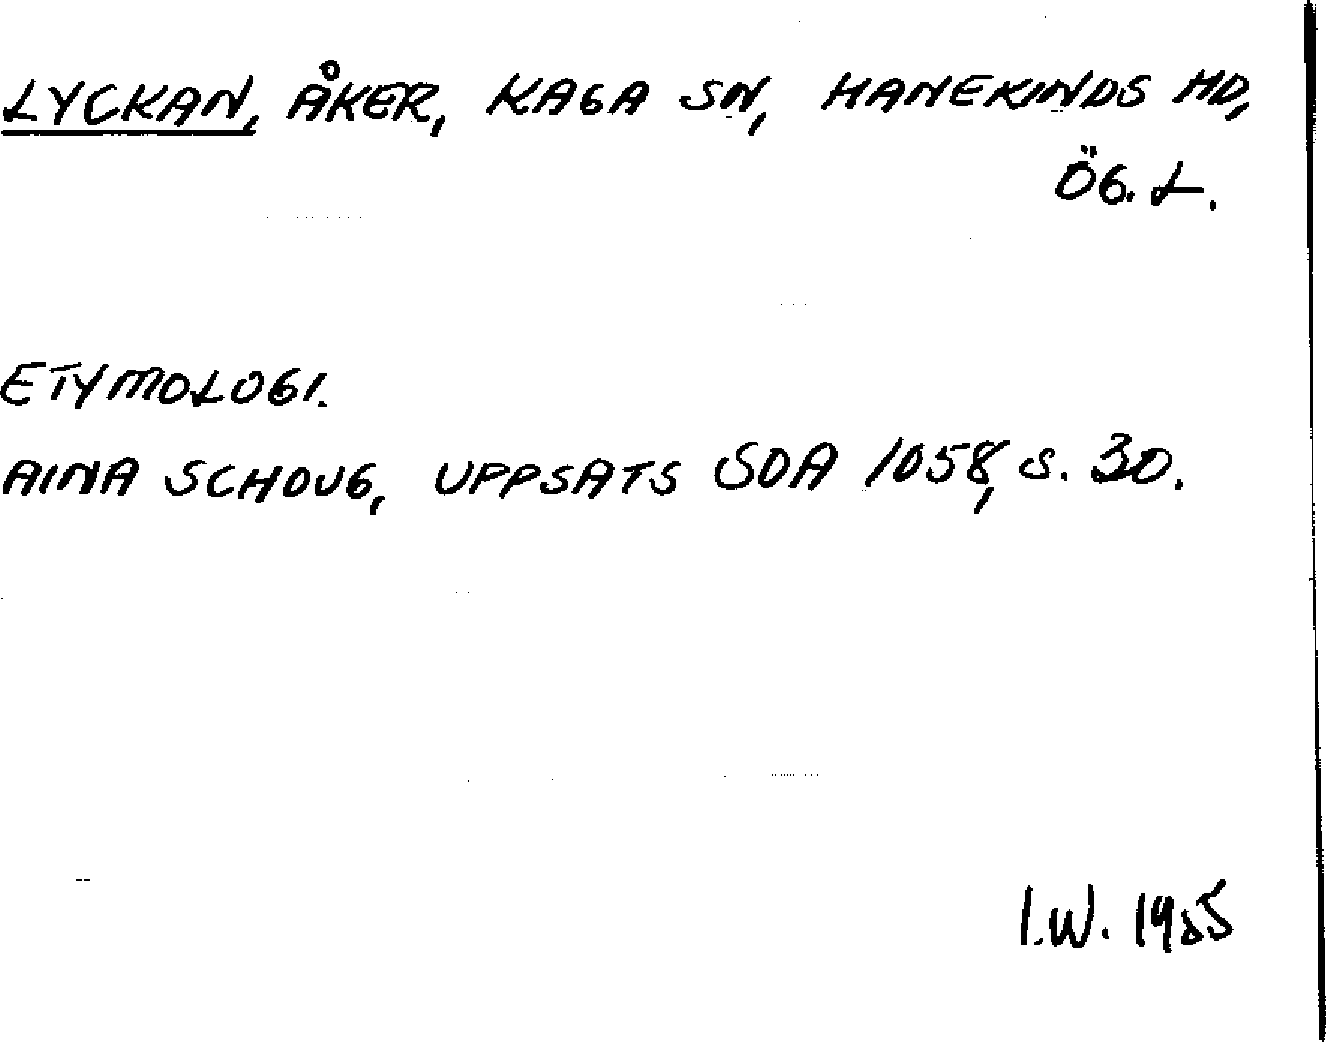 LYCKAN, ÅKER, KAGA SN, HANEKINDS HD,
ÖG. L.
ETYMOLOGI.
AINA SCHOUG, UPPSATS SOA 1058, S. 30.
I.W. 1955